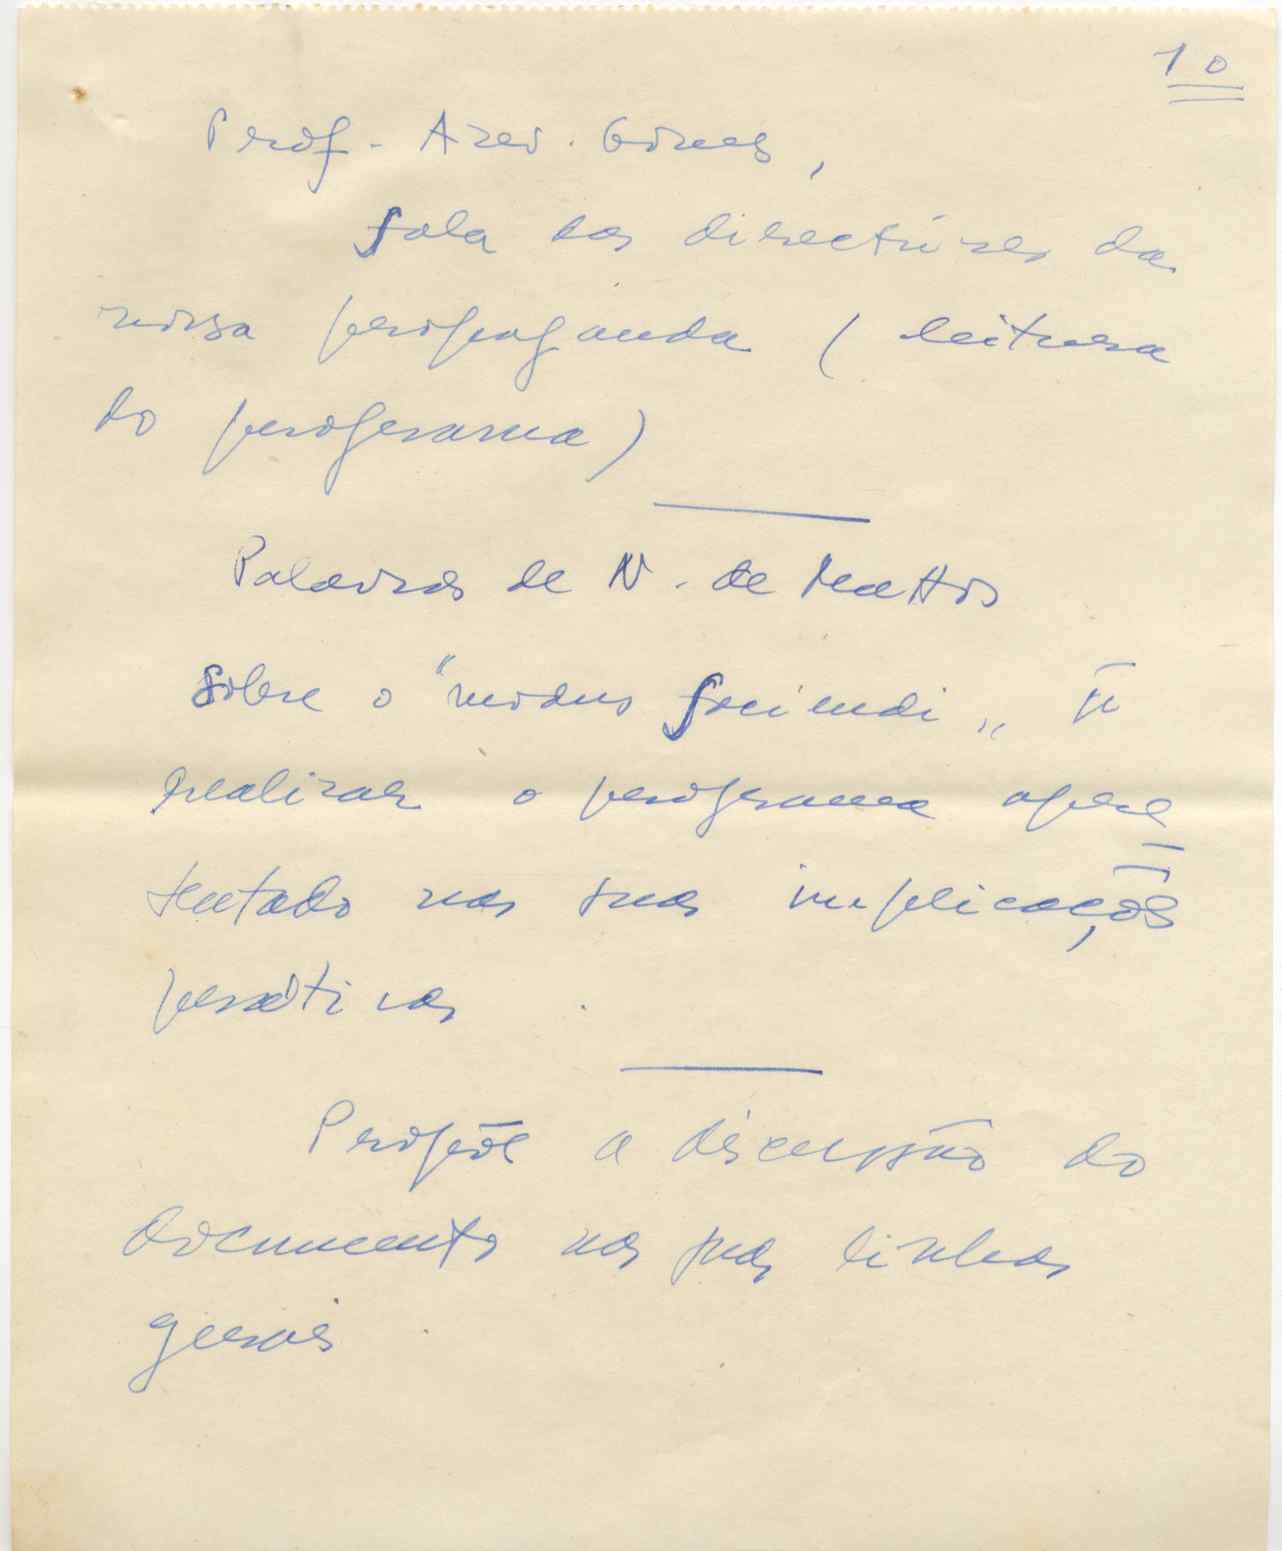 10
Prof. Azev. Gomes,
fala das directrizes da
nossa propaganda (leitura
do programa)
Palavras de N. de Mattos
sobre o "modus faciendi„ p
realizar o programa apre
sentado nas suas implicaçõs
práticas.
Propõe a discussão do
documento nas suas linhas
gerais.